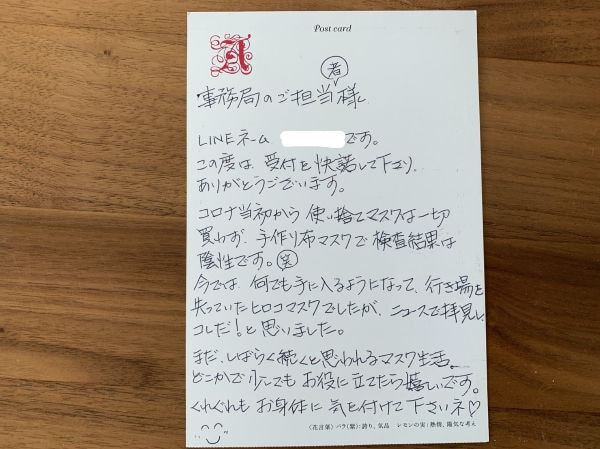 Post card
A
事務局のご担当者様
LINEネーム です。
この度は、受付を快諾して下さり、
ありがとうございます。
コロナ当初から使い捨てマスクは一切
買わず、手作り布マスクで検査結果は
陰性です。笑
今では、何でも手に入るようになって、行き場を
失っていたヒロコマスクでしたが、ニュースで拝見し、
コレだ!と思いました。
まだ、しばらく続くと思われるマスク生活。
どこかで少しでもお役に立てたら嬉しいです。
くれぐれもお身体に気を付けて下さいネ♡
〈花言葉〉バラ(紫):誇り、気品 レモンの実:熱情、陽気な考え